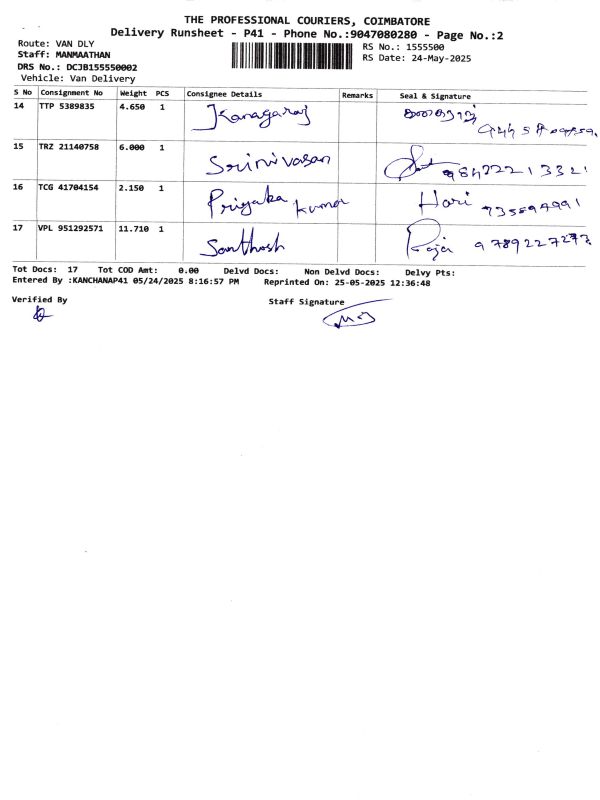 THE PROFESSIONAL COURIERS, COIMBATORE
Delivery Runsheet - P41 - Phone No.:9047080280 - Page No.:2
Route: VAN DLY
Staff: MANMAATHAN
DRS No.: DCJB155550002
Vehicle: Van Delivery
RS No.: 1555500
RS Date: 24-May-2025
S No Consignment No Weight PCS Consignee Details Remarks Seal & Signature
14 TTP 5389835 4.650 1 Kanagaraj
15 TRZ 21140758 6.000 1 Srinivasan
16 TCG 41704154 2.150 1 Priyaka Kumar Hari 735894991
17 VPL 951292571 11.710 1 Santhosh Raja 9789227273
Tot Docs: 17 Tot COD Amt: 0.00 Delvd Docs: Non Delvd Docs: Delvy Pts:
Entered By :KANCHANAP41 05/24/2025 8:16:57 PM Reprinted On: 25-05-2025 12:36:48
Verified By
Staff Signature